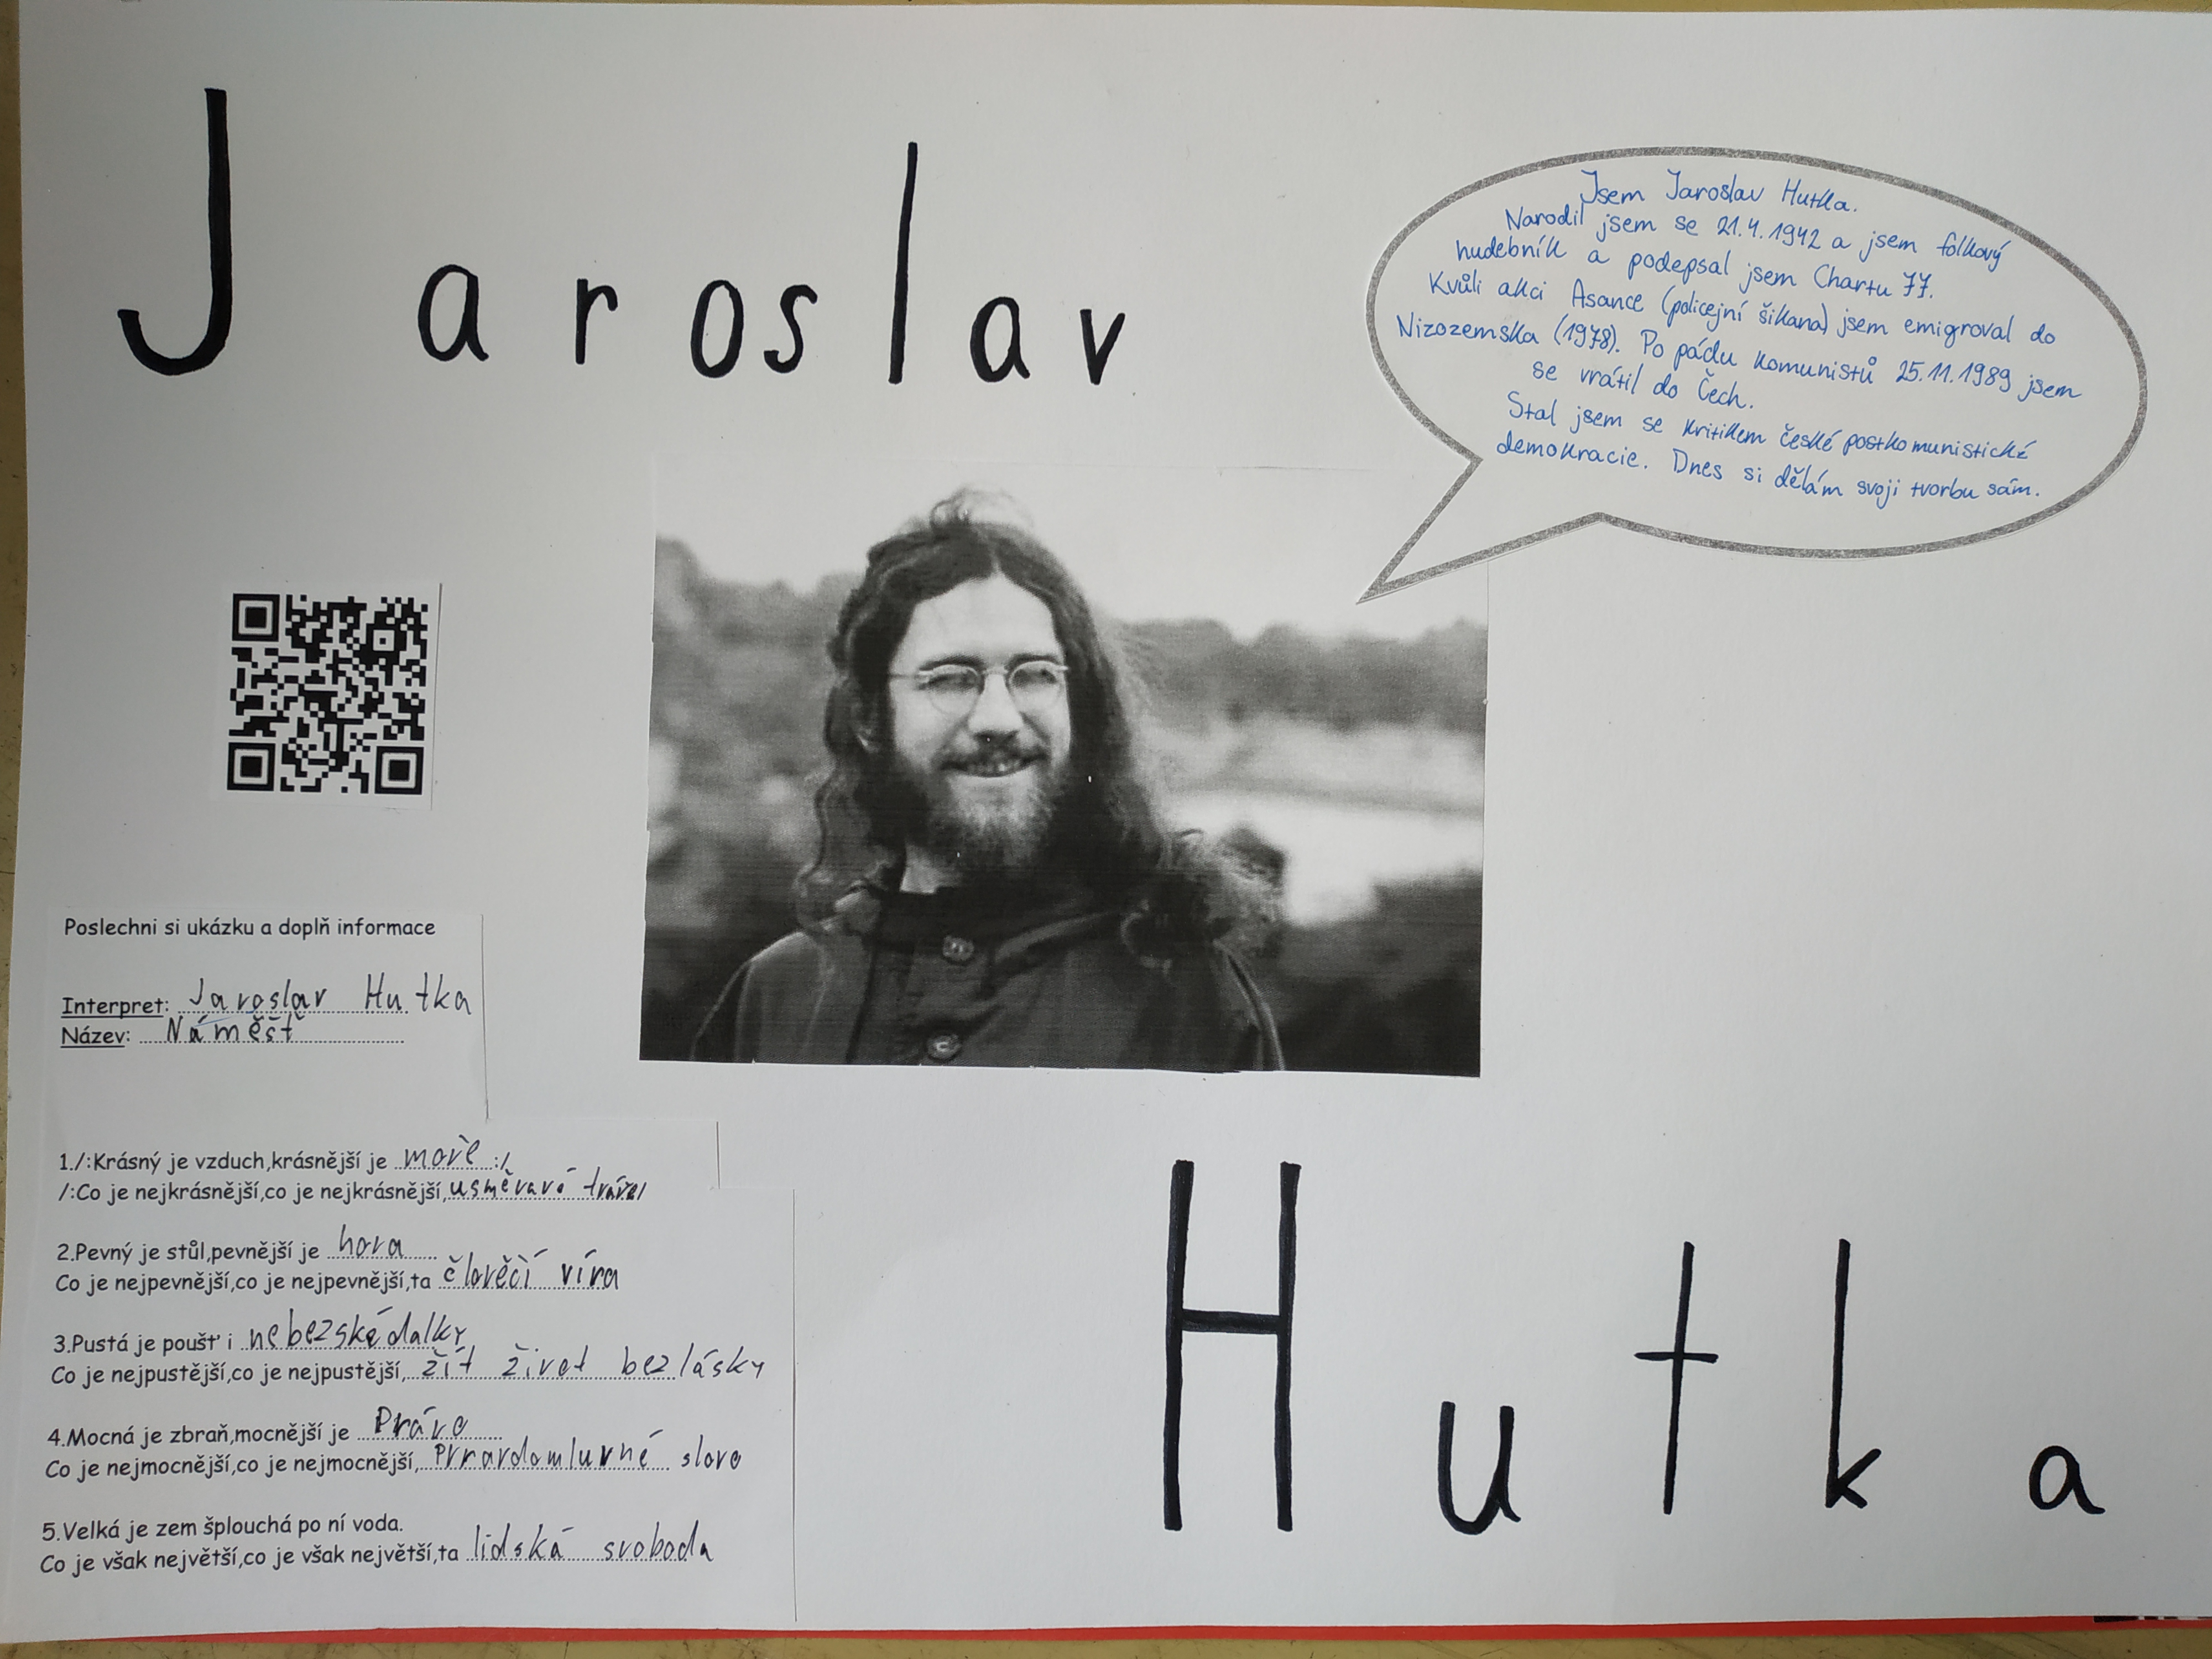 Jaroslav
Jsem Jaroslav Hutka.
Narodil jsem se 21.4.1942 a jsem folkový
hudebník a podepsal jsem Chartu 77.
Kvůli akci Asance (policejní šikana) jsem emigroval do
Nizozemska (1978). Po pádu komunistů 25.11.1989 jsem
se vrátil do Čech.
Stal jsem se kritikem české postkomunistické
demokracie. Dnes si dělám svoji tvorbu sám.
Poslechni si ukázku a doplň informace
Interpret: Jaroslav Hutka
Název: Náměšť
1./:Krásný je vzduch,krásnější je moře :/
/:Co je nejkrásnější,co je nejkrásnější,usměvavé tváře/
2.Pevný je stůl,pevnější je hora
Co je nejpevnější,co je nejpevnější,ta člověčí víra
3.Pustá je poušť i nebezské dalky
Co je nejpustější,co je nejpustější, žít život bez lásky
4.Mocná je zbraň,mocnější je Právo
Co je nejmocnější,co je nejmocnější, Prravdomluvné slovo
5.Velká je zem šplouchá po ní voda.
Co je však největší,co je však největší,ta lidská svoboda
Hutka